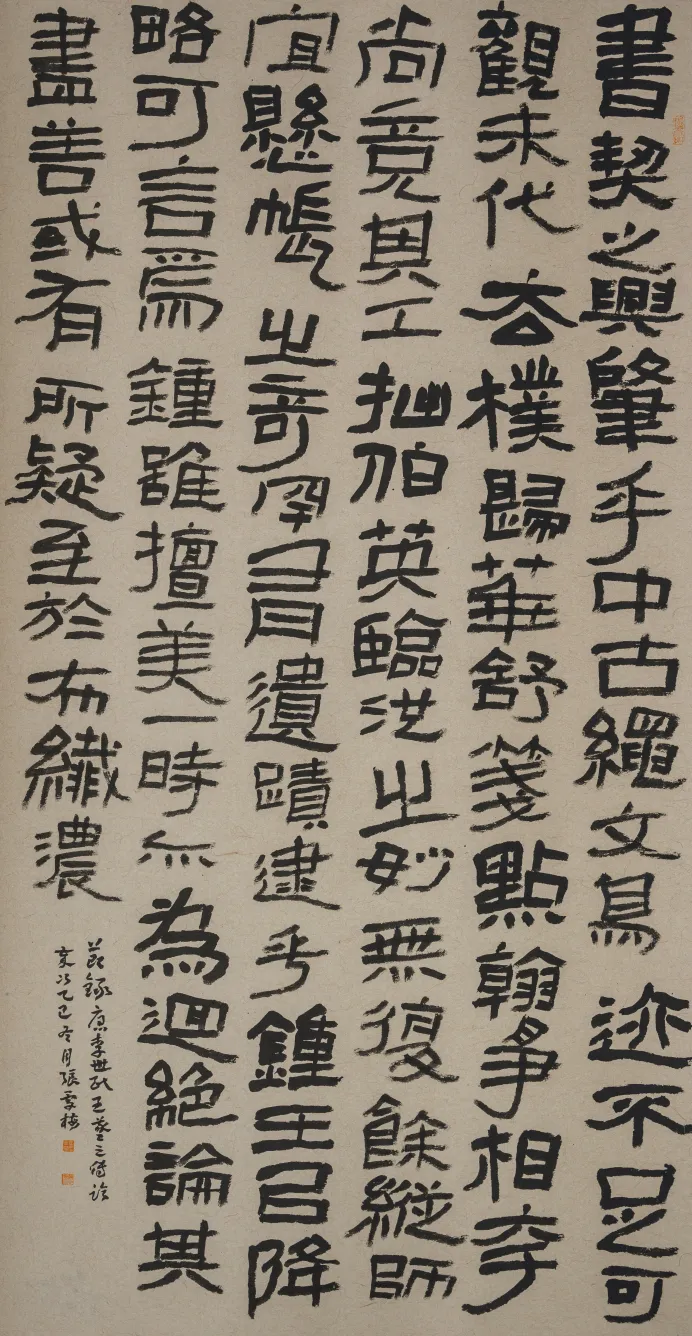 書契之興肇乎中古繩文鳥迹不足可
觀末代去樸歸華舒箋點翰爭相夸
尚竟其工拙伯英臨池之妙無復餘縱師
宜懸帳之奇罕有遺蹟逮乎鍾王以降
略可言焉鍾雖擅美一時亦為迴絕論其
盡善或有所疑至於布纖濃
節錄唐李世民王羲之傳論
歲次乙巳冬月張